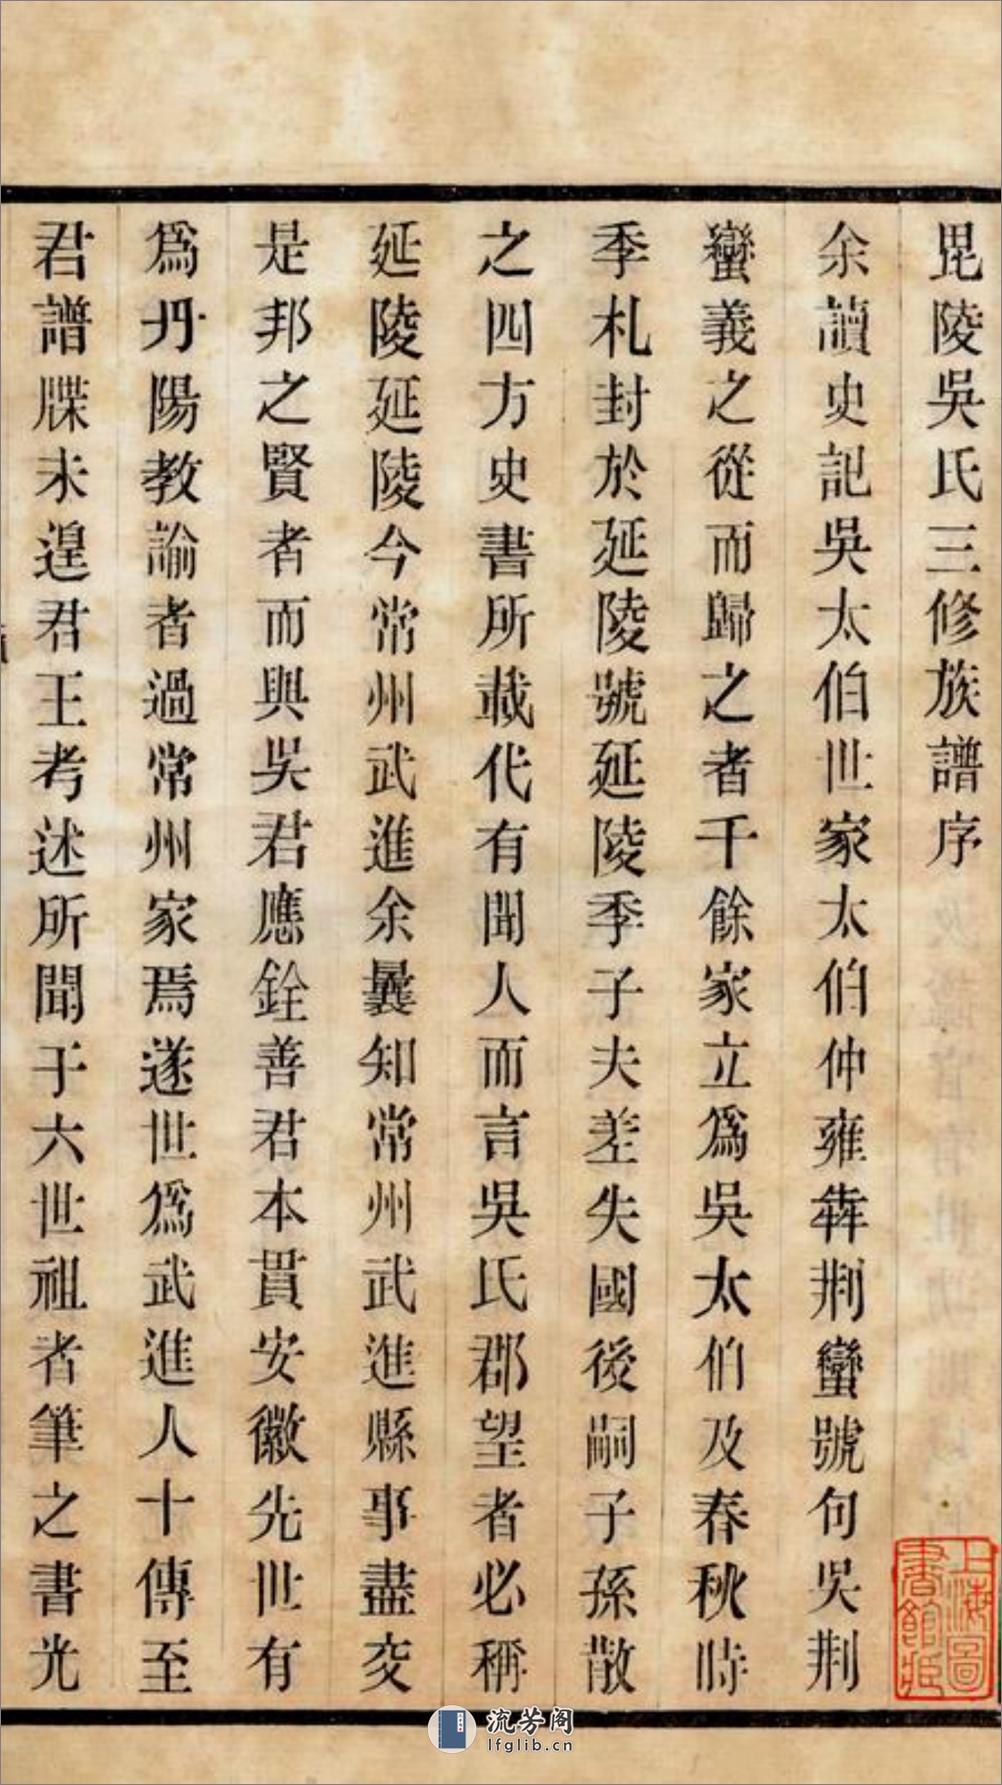 毘陵吳氏三修族譜序
余讀史記吳太伯世家太伯仲雍犇荆蠻號句吳荆
蠻義之從而歸之者千餘家立爲吳太伯及春秋時
季札封於延陵號延陵季子夫差失國後嗣子孫散
之四方史書所載代有聞人而言吳氏郡望者必稱
延陵延陵今常州武進余曩知常州武進縣事盡交
是邦之賢者而與吳君應銓善君本貫安徽先世有
爲丹陽教諭者過常州家焉遂世爲武進人十傳至
君譜牒未遑君王考述所聞于六世祖者筆之書光
上海圖書館藏
流芳阁
lfglib.cn